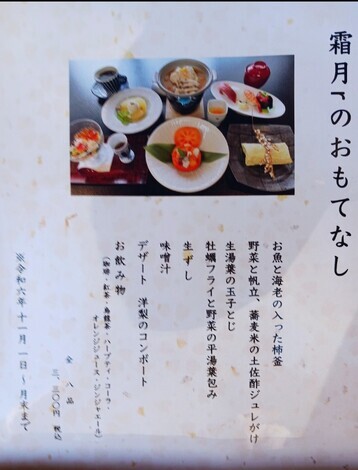 霜月のおもてなし
お魚と海老の入った柿釜
野菜と帆立、蕎麦米の土佐酢ジュレがけ
生湯葉の玉子とじ
牡蠣フライと野菜の平湯葉包み
生ずし
味噌汁
デザート 洋梨のコンポート
お飲み物
(珈琲・紅茶・烏龍茶・ハーブティ・コーラ・
オレンジジュース・ジンジャエール)
全 八品
三、三〇〇円 税込
※令和六年十一月一日～月末まで